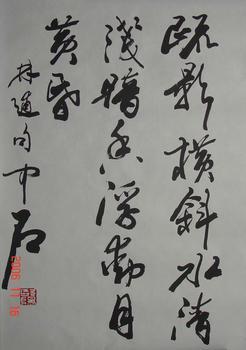 疏影横斜水清
浅暗香浮動月
黄昏
林逋句中石
2006 11 16